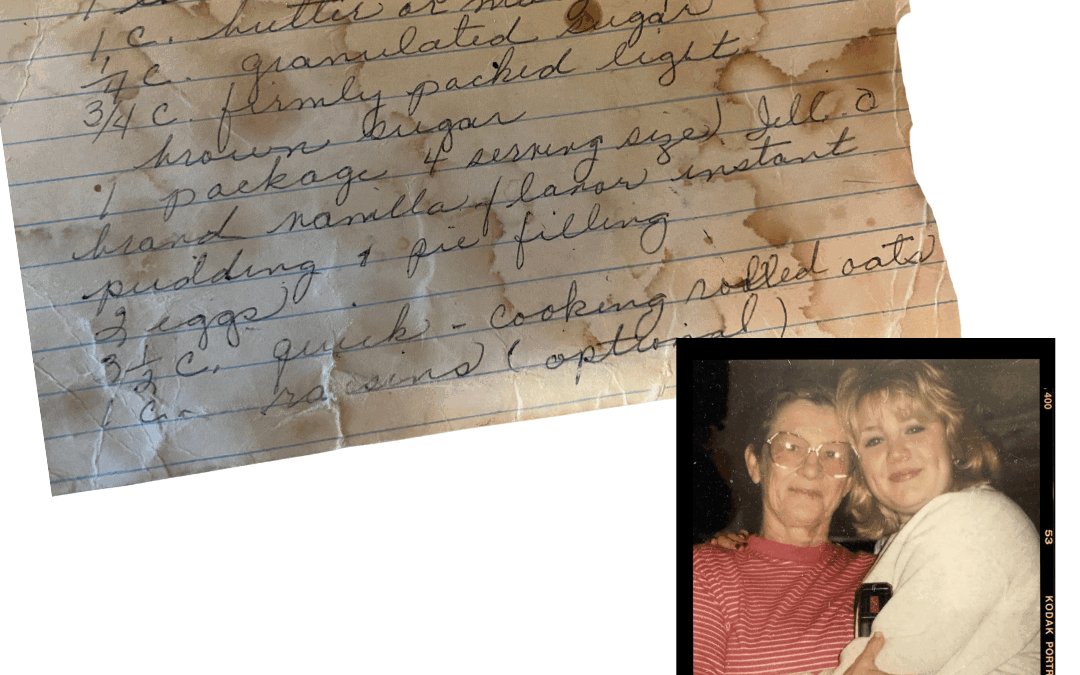 1 c. butter or
1/4 c. granulated sugar
3/4 c. firmly packed light
brown sugar
1 package 4 serving size) Jell-o
brand vanilla flavor instant
pudding & pie filling
2 eggs
3 1/2 c. quick - cooking rolled oats
1 c. raisins (optional)
400
53
KODAK PORTR